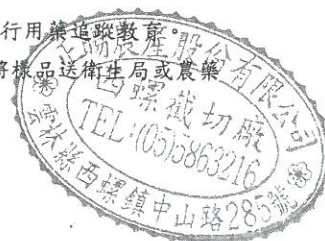 行用藥追蹤教育。
將樣品送衛生局或農藥
農產股份有限公司
西螺截切廠
TEL:(05)5863216
雲林縣西螺鎮中山路285號